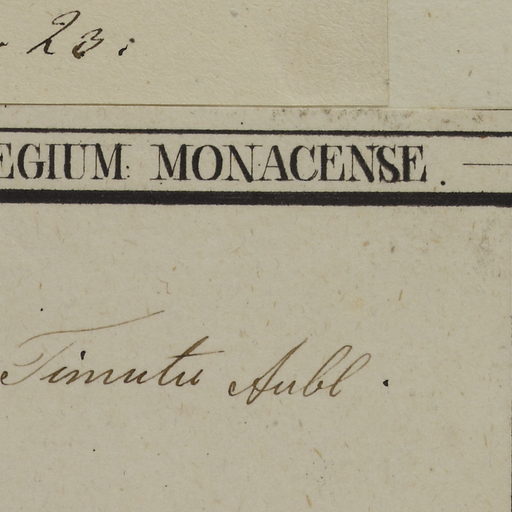 23.
EGIUM MONACENSE.
Timutu Aubl.